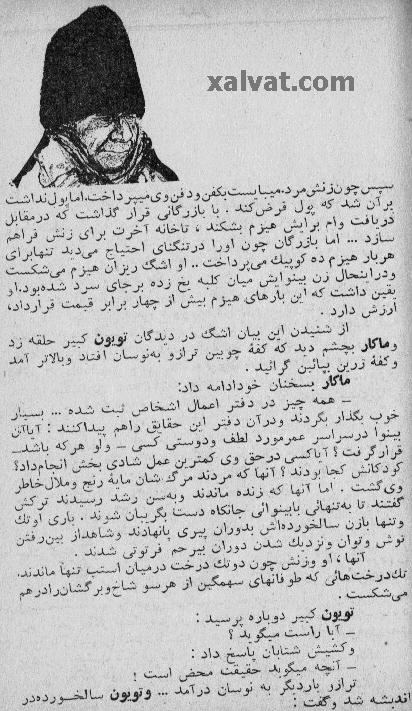 xalvat.com
سپس چون زنش مرد، میبایست بکفن و دفن وی میپرداخت، اما پول نداشت
برآن شد که پول قرض کند . با بازرگانی قرار گذاشت که درمقابل
دریافت وام برایش هیزم بشکند ، تاخانه آخرت برای زنش فراهم
سازد ... اما بازرگان چون اورا درتنگنای احتیاج می‌دید تنهابرای
هربار هیزم ده کوپیک می‌پرداخت .. او اشگ ریزان هیزم می‌شکست
ودراینحال زن بینوایش میان کلبه یخ زده برجای سرد شده‌بود. او
یقین داشت که این بارهای هیزم بیش از چهار برابر قیمت قرارداد،
ارزش دارد .
از شنیدن این بیان اشگ در دیدگان تویون کبیر حلقه زد
و ماکار بچشم دید که کفهٔ چوبین ترازو به‌نوسان افتاد وبالاتر آمد
وکفهٔ زرین بپائین گرائید .
ماکار بسخنان خودادامه داد:
ـ همه چیز در دفتر اعمال اشخاص ثبت شده ... بسیار
خوب بگذار بگردند ودرآن دفتر این حقایق راهم پیداکنند : آیاآن
بینوا درسراسر عمرمورد لطف ودوستی کسی ـ ولو هرکه باشدـ
قرارگرفت ؟ آیاکسی درحق وی کمترین عمل شادی بخش انجام‌داد؟
کودکانش کجا بودند ؟ آنها که مردند مرگ‌شان مایهٔ رنج وملال‌خاطر
وی‌گشت . اما آنها که زنده ماندند وبه‌سن رشد رسیدند ترکش
گفتند تا به‌تنهائی بابینوائی جانکاه دست بگریبان شوند . باری اوتک
وتنها بازن سالخورده‌اش بدوران پیری پانهادند وشاهداز بین‌رفتن
توش وتوان ونزدیک شدن دوران بیرحم فرتوتی شدند .
آنها ، او وزنش چون دوتک درخت درمیان استپ تنها ماندند.
تک‌درخت‌هائی که طوفانهای سهمگین از هرسو شاخ‌وبرگشان‌رادرهم
می‌شکست .
تویون کبیر دوباره پرسید :
ـ آیا راست میگوید ؟
وکشیش شتابان پاسخ داد :
ـ آنچه میگوید حقیقت محض است !
ترازو باردیگر به نوسان درآمد ... وتویون سالخورده‌در
اندیشه شد وگفت :